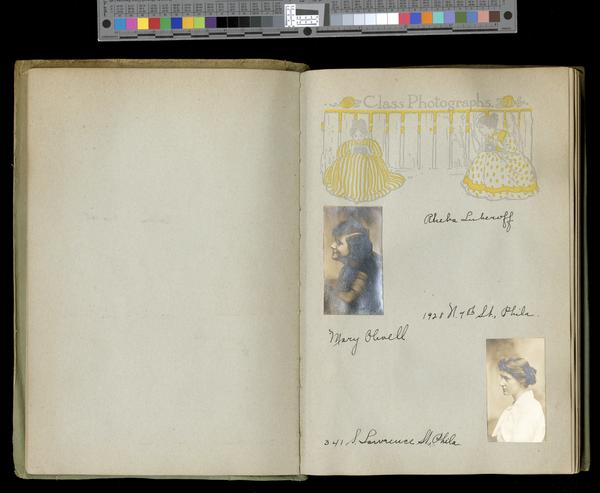 Class Photographs.
Rheba Luberoff
1928 N. 7th St., Phila.
Mary Olwell
341 S. Lawrence St, Phila